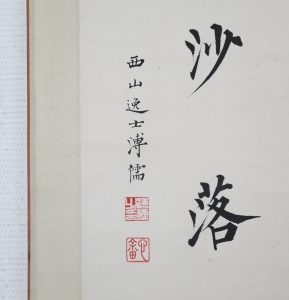 沙落
西山逸士溥儒